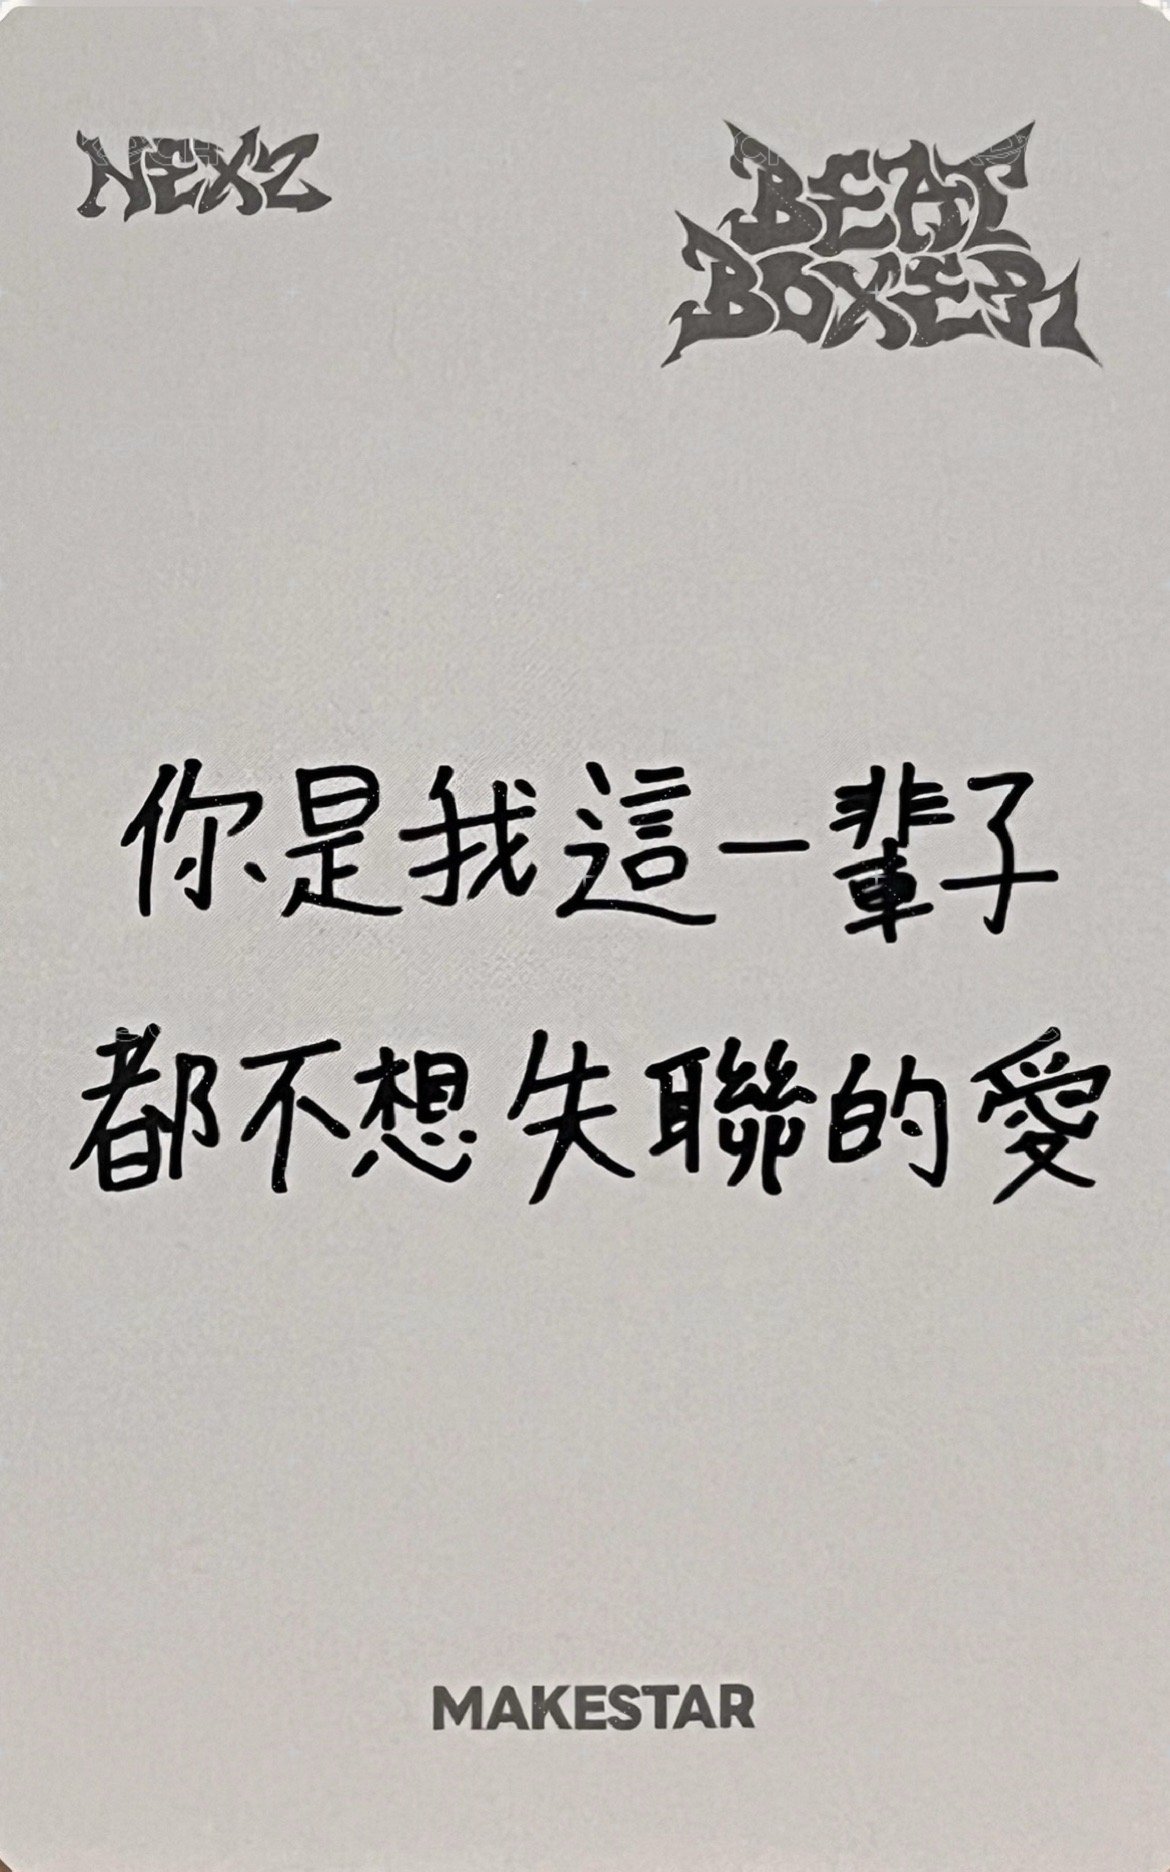 NEXZ
BEAT
BOXER
你是我這一輩子
都不想失聯的愛
MAKESTAR